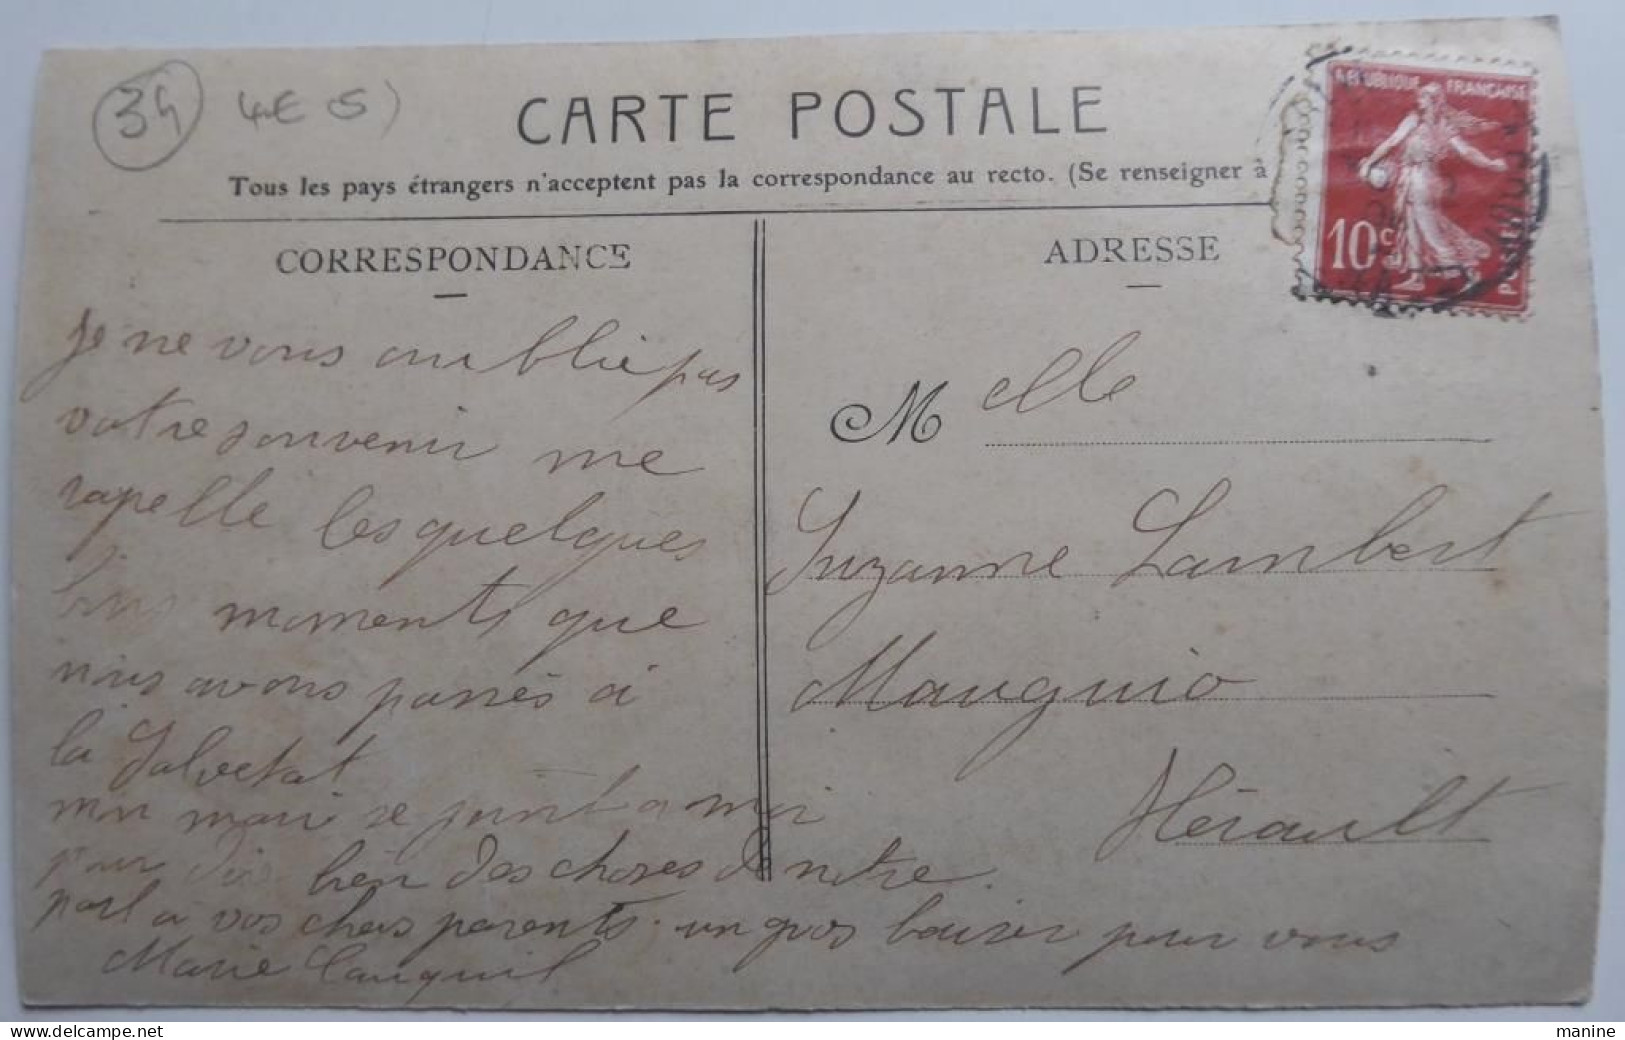 34 4E 5)
CARTE POSTALE
Tous les pays étrangers n'acceptent pas la correspondance au recto. (Se renseigner à
REPUBLIQUE FRANÇAISE
10c
POSTES
CORRESPONDANCE
ADRESSE
je ne vous oublie pas
votre souvenir me
rapelle les quelques
bons moments que
nous avons passés à
la Salvetat
mon mari se joint a moi
pour dire bien des choses de notre
part a vos chers parents. un gros baiser pour vous
Marie Cauquil
M elle
Suzanne Lambert
Mauguio
Hérault
manine